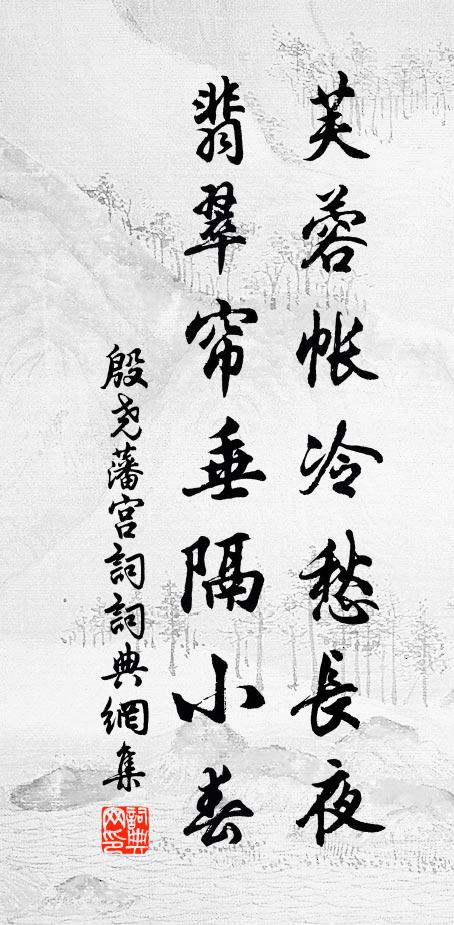 芙蓉帐冷愁長夜
翡翠帘垂隔小春
殷尧藩宫詞詞典網集
詞典网印